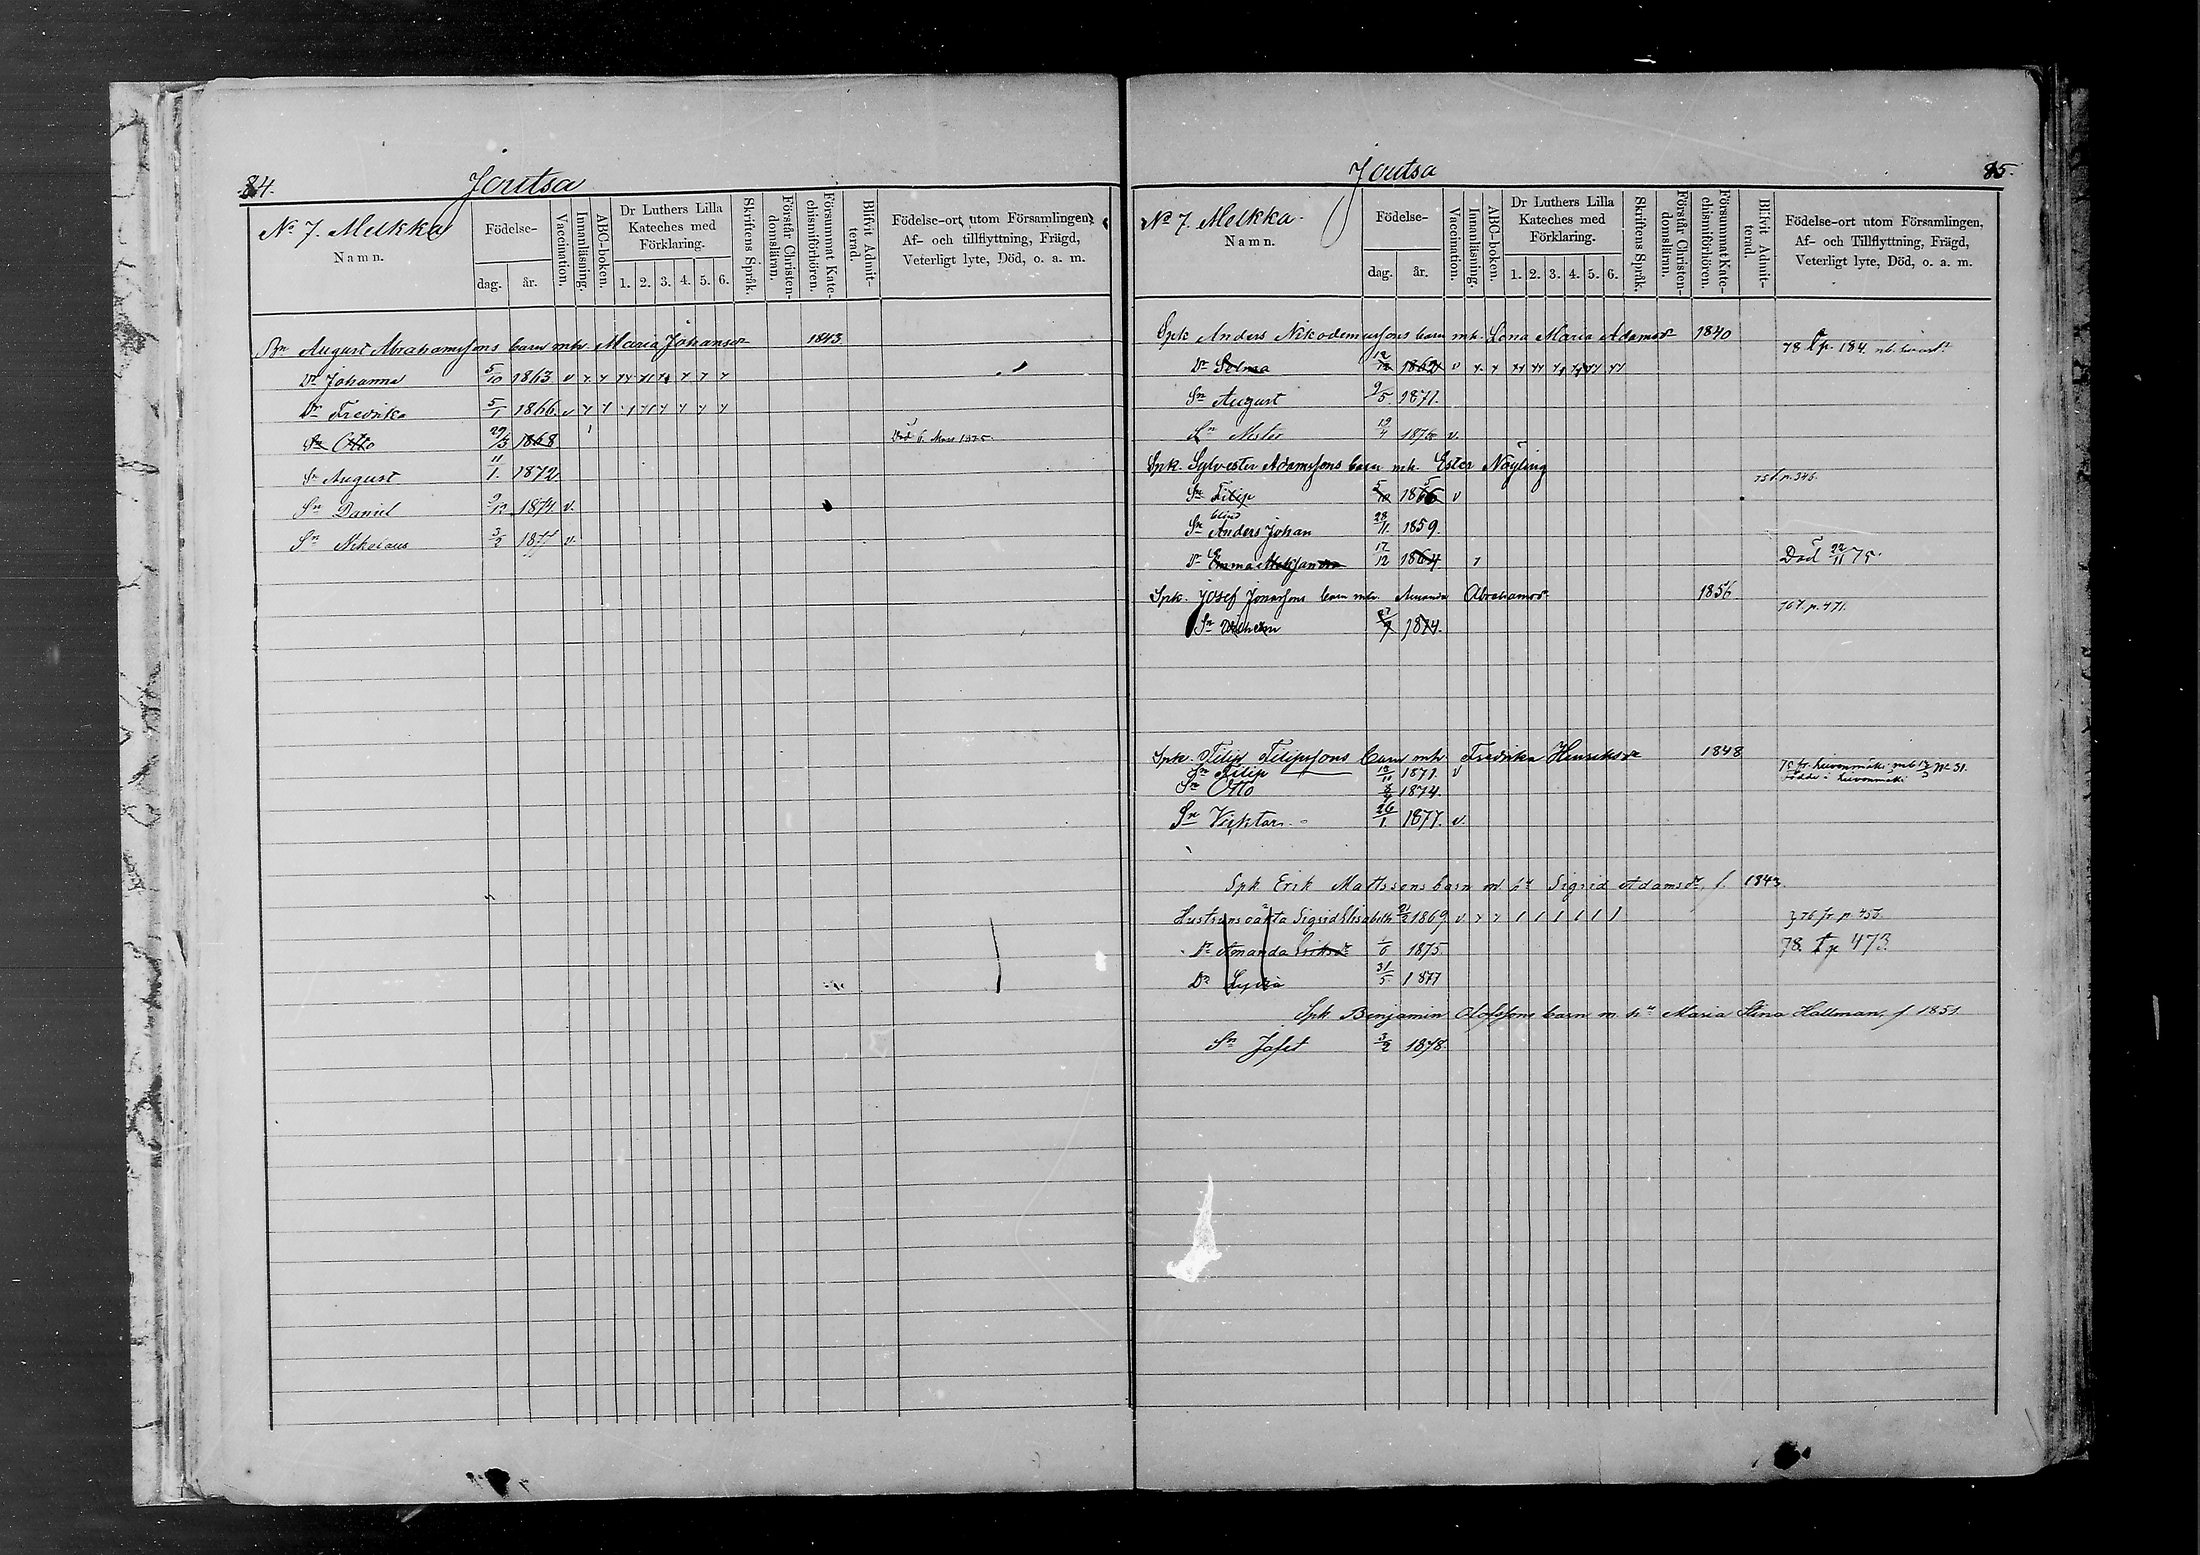 84.
Joutsa
No 7. Melkka
Namn.
Födelse-
dag.
år.
Vaccination.
Innanläsning.
ABC-boken.
Dr Luthers Lilla Kateches med Förklaring.
1. 2. 3. 4. 5. 6.
Skriftens Språk.
Förstår Christendomsläran.
Försummat Katechismiförhören.
Blifvit Admitterad.
Födelse-ort utom Församlingen,
Af- och tillflyttning, Frägd,
Veterligt lyte, Död, o. a. m.
August Abrahamssons barn mh. Maria Johansdr 1843
Dr Johanna 5/10 1863 v
Dr Fredrika 5/1 1866 v
Sn Otto 29/3 1868 Död 6. Mars 1875.
Sn August 11/1. 1872
Sn Daniel 9/12 1874 v.
Sn Nikolaus 3/2 1877 v.
85.
Joutsa
No 7. Melkka
Namn.
Födelse-
dag.
år.
Vaccination.
Innanläsning.
ABC-boken.
Dr Luthers Lilla Kateches med Förklaring.
1. 2. 3. 4. 5. 6.
Skriftens Språk.
Förstår Christendomsläran.
Försummat Katechismiförhören.
Blifvit Admitterad.
Födelse-ort utom Församlingen,
Af- och Tillflyttning, Frägd,
Veterligt lyte, Död, o. a. m.
Spk Anders Nikodemussons barn mh. Lena Maria Adamsdr 1840
78 t p. 184.
Dr Selma 1862 v
Sn August 9/5 1871.
Sn Nestor 19/4 1876 v.
Spk. Sylvester Adamssons barn mh. Ester Näyling
75 t. p. 346.
Sn Filip 5/10 v
blind
Sn Anders Johan 28/11 1859.
Dr Emma 17/12 1864 Död 22/11 75.
Spk. Josef Jonassons barn mh. Amanda Abrahamsdr 1856
76 t. p. 471.
Sn Vilhelm 1874.
Spk. Filip Filipssons barn mh. Fredrika Henriksdr 1848
Sn Filip 1871. v
Sn Otto 1874.
Sn Viktor 26/1 1877. v.
Spk Erik Mattssons barn m hu Sigrid Adamsdr, f. 1843.
Hustruns oäkta Sigrid Elisabeth 1869 v.
76 fr p. 455.
Dr Amanda Eriksdr 1875.
78. t p 473
Dr Lydia 31/5 1877
Spk Benjamin Olofssons barn m hu Maria Stina Hallman, f 1851.
Sn Jafet 3/2 1878.